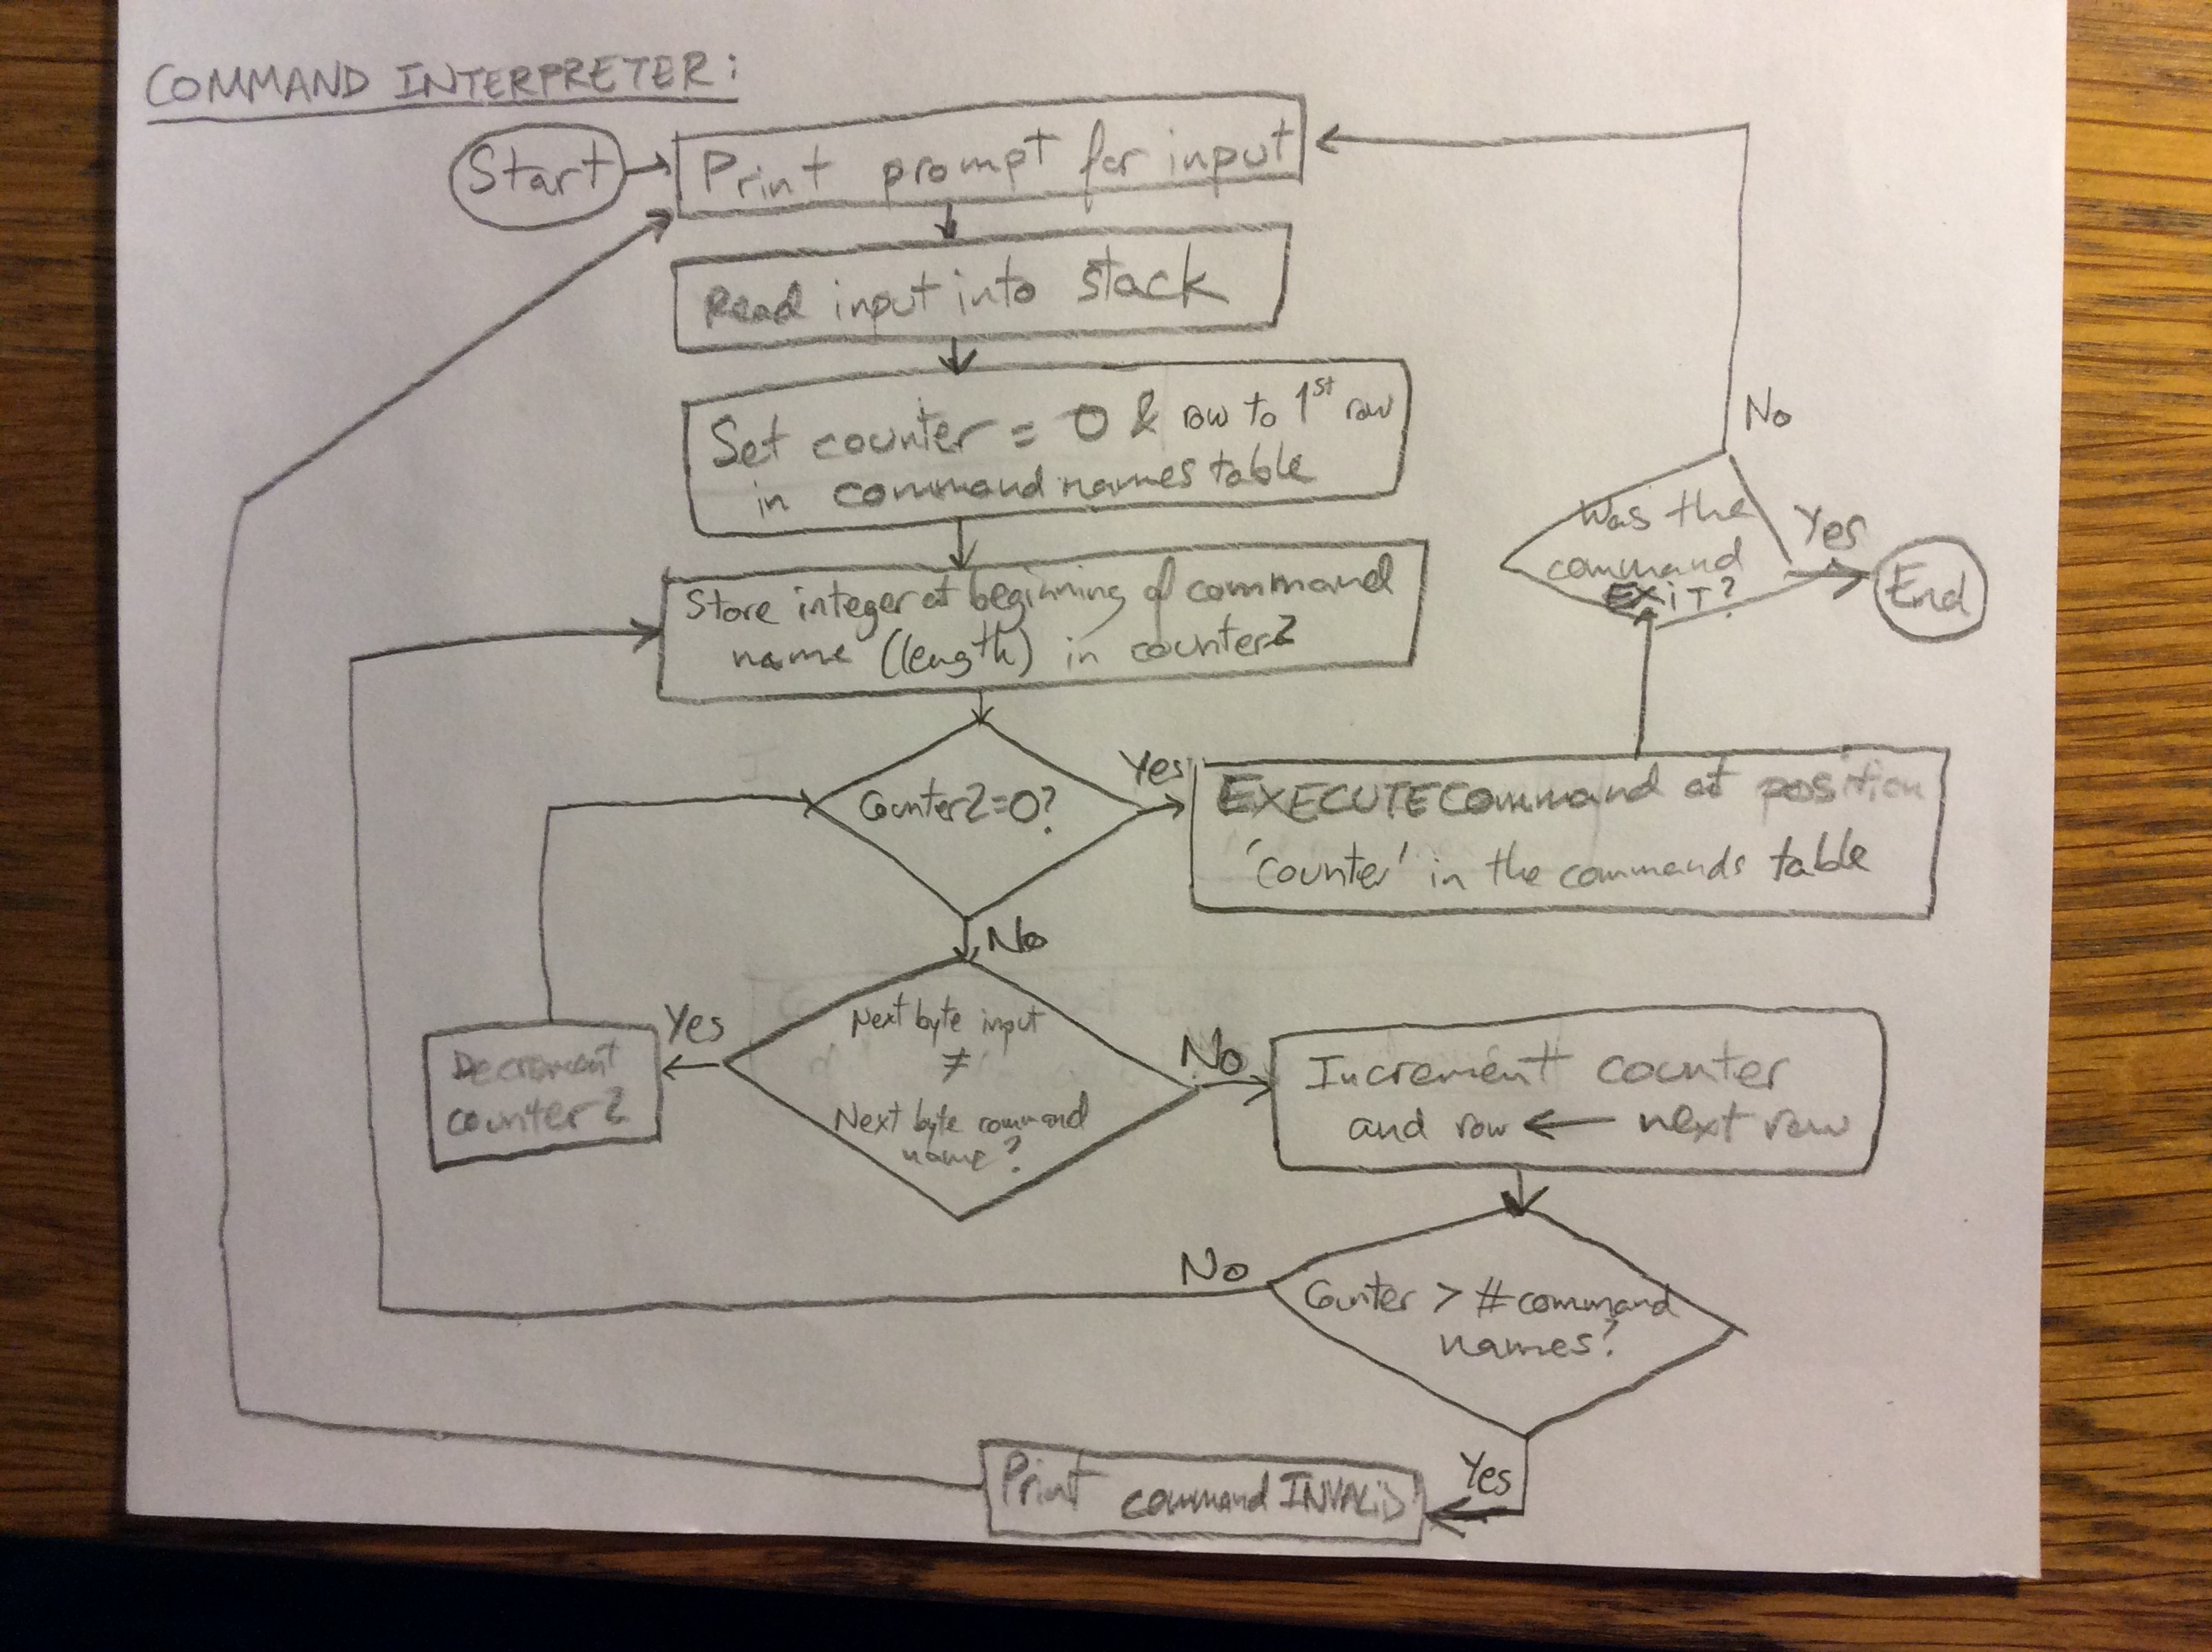 COMMAND INTERPRETER:
Start
Print prompt for input
Read input into stack
Set counter = 0 & row to 1st row
in command names table
Store integer at beginning of command
name (length) in counter2
Counter2=0?
Yes
EXECUTE command at position
'counter' in the commands table
Was the
command
EXiT?
No
Yes
End
No
Next byte input
≠
Next byte command
name?
Yes
Decrement
counter2
No
Increment counter
and row ← next row
Counter > # command
names?
No
Yes
Print command INVALiD